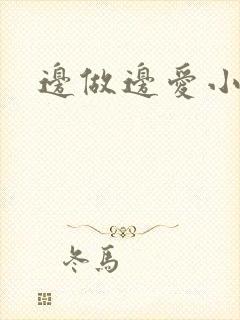 邊做邊愛小
冬馬